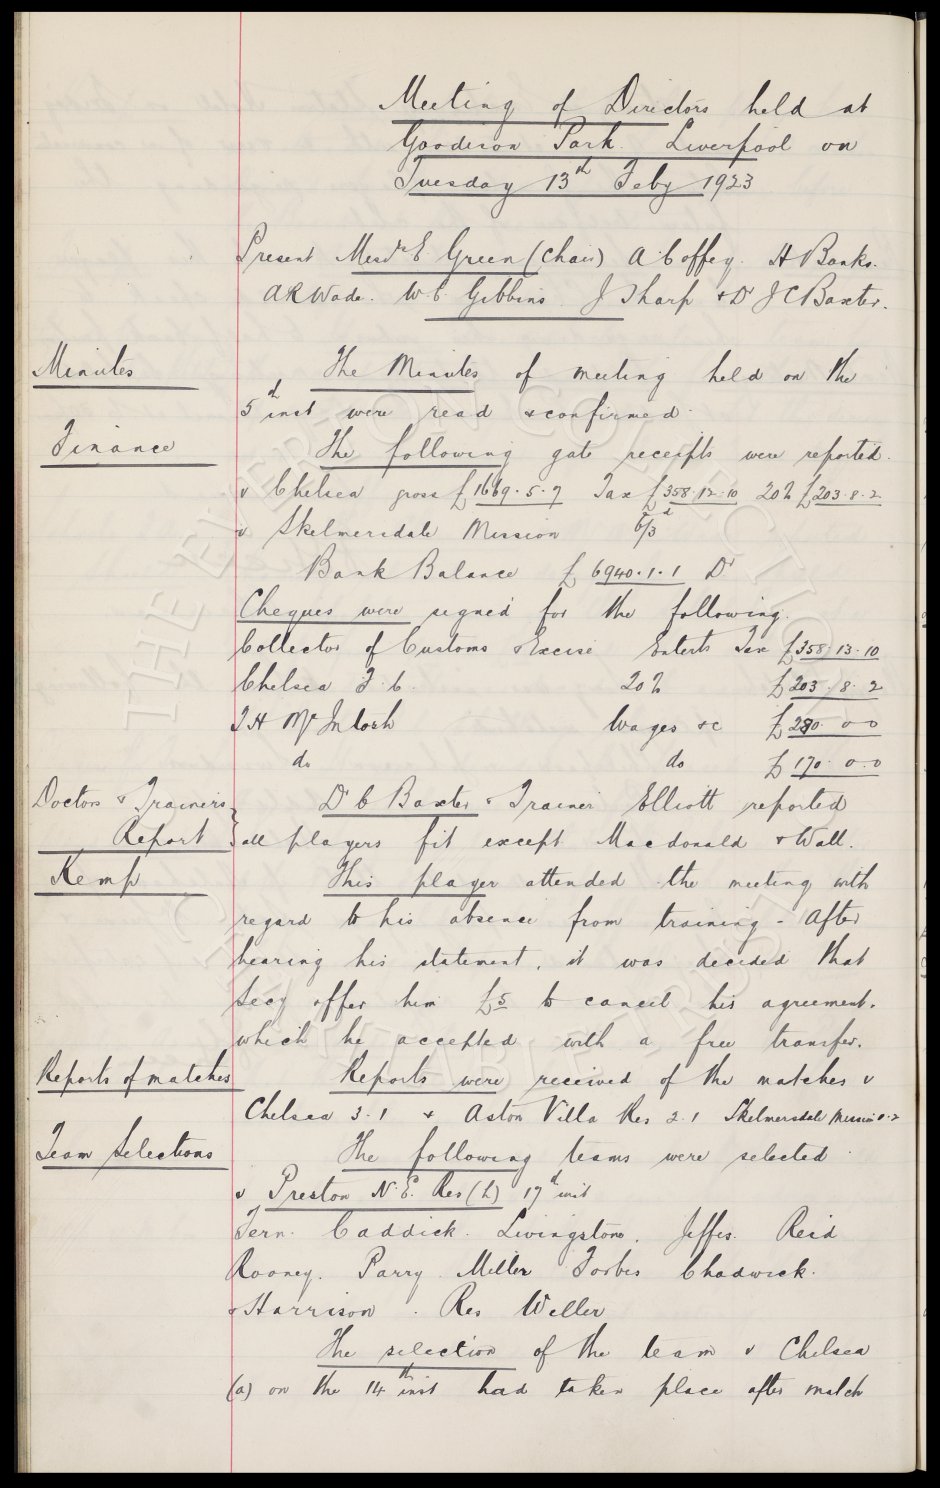 Meeting of Directors held at
Goodison Park. Liverpool on
Tuesday 13th Feby 1923
Present Messrs E. Green (Chair) A Coffey. H Banks.
A R Wade. W.C. Gibbins J Sharp & Dr J C Baxter.
Minutes
The Minutes of meeting held on the
5th inst were read & confirmed.
Finance
The following gate receipts were reported.
v Chelsea gross £1669.5.7 Tax £358.12.10 20% £203.8.2
v Skelmersdale Mission 6/3d
Bank Balance £6940.1.1 Dr
Cheques were signed for the following.
Collector of Customs & Excise Enterts Tax £358.13.10
Chelsea F.C. 20% £203.8.2
T H McIntosh Wages &c £280.0.0
do do £170.0.0
Doctors & Trainers
Report
Dr C Baxter & Trainer Elliott reported
all players fit except Macdonald & Wall.
Kemp
This player attended the meeting with
regard to his absence from training - After
hearing his statement, it was decided that
Secy offer him £5 to cancel his agreement.
which he accepted with a free transfer.
Reports of matches
Reports were received of the matches v
Chelsea 3.1 & Aston Villa Res 2.1 Skelmersdale Mission 0.2
Team Selections
The following teams were selected
v Preston N.E. Res (h) 17th inst
Fern. Caddick. Livingstone. Jeffs. Reid
Rooney. Parry. Miller Forbes Chadwick.
& Harrison. Res Weller
The selection of the team v Chelsea
(a) on the 14th inst had taken place after match
THE EVERTON COLLECTION